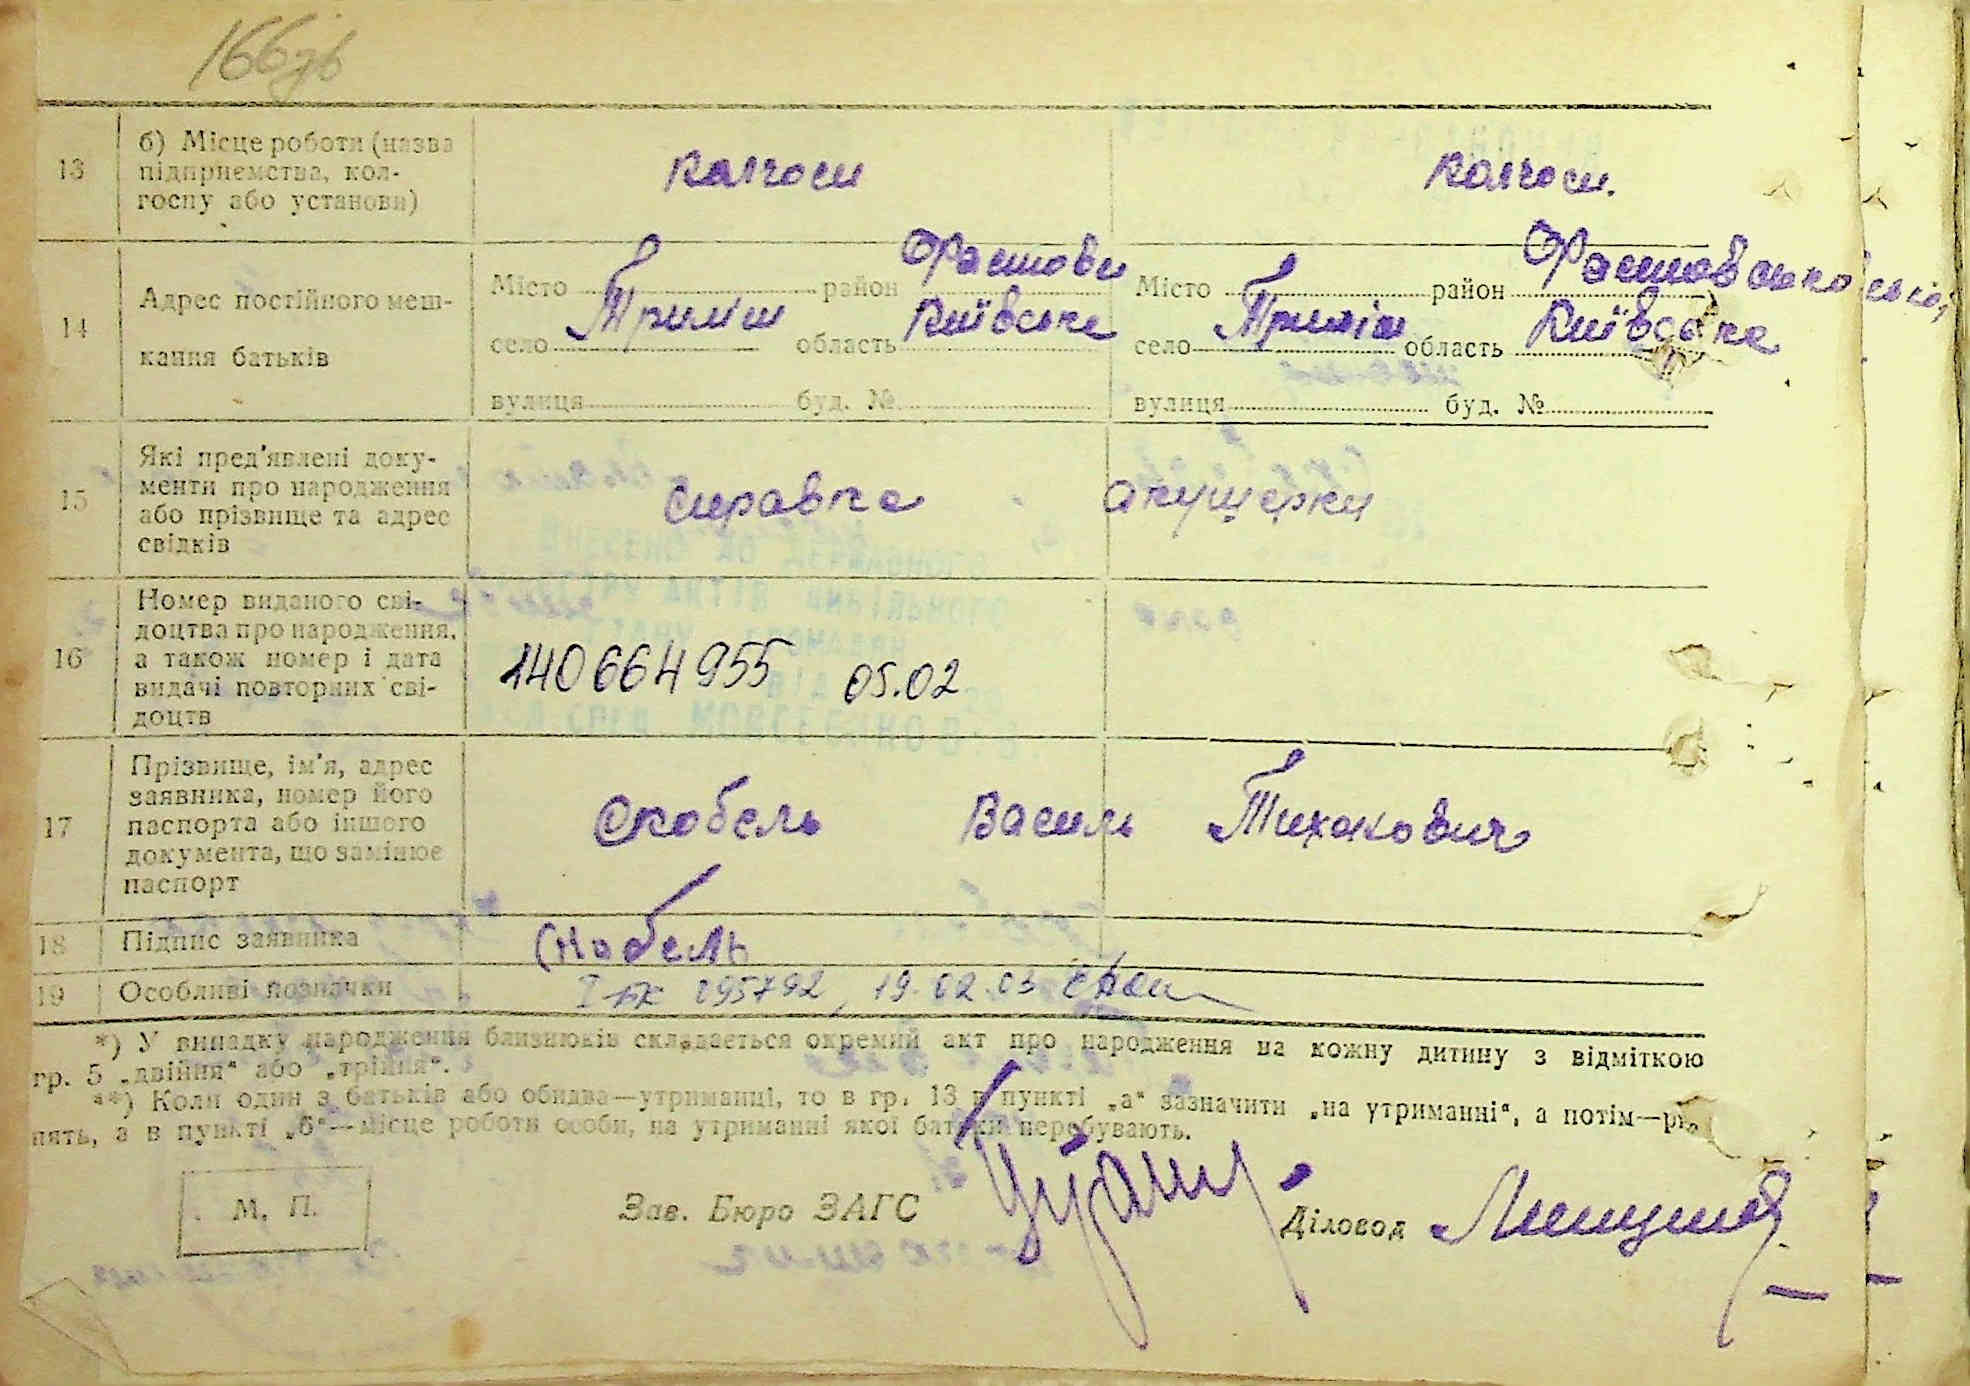 166зв
13 б) Місце роботи (назва
підприємства, кол-
госпу або установи)
колгосп колгосп.
14 Адрес постійного меш-
кання батьків
Місто район Фастовс
село Триліси область Київська
вулиця буд. №
Місто район Фастовський
село Триліси область Київська
вулиця буд. №
15 Які пред'явлені доку-
менти про народження
або прізвище та адрес
свідків
справка акушерки
16 Номер виданого сві-
доцтва про народження,
а також номер і дата
видачі повторних сві-
доцтв
140664955 05.02
17 Прізвище, ім'я, адрес
заявника, номер його
паспорта або іншого
документа, що замінює
паспорт
Скобель Василь Тиханович
18 Підпис заявника Скобель
19 Особливі позначки І-БК 295792, 19.02.03
*) У випадку народження близнюків складається окремий акт про народження на кожну дитину з відміткою
гр. 5 „двійня“ або „трійня“.
**) Коли один з батьків або обидва—утриманці, то в гр. 13 в пункті „а“ зазначити „на утриманні“, а потім—рі
нять, а в пункті „б“—місце роботи особи, на утриманні якої батьки перебувають.
М. П. Зав. Бюро ЗАГС Діловод